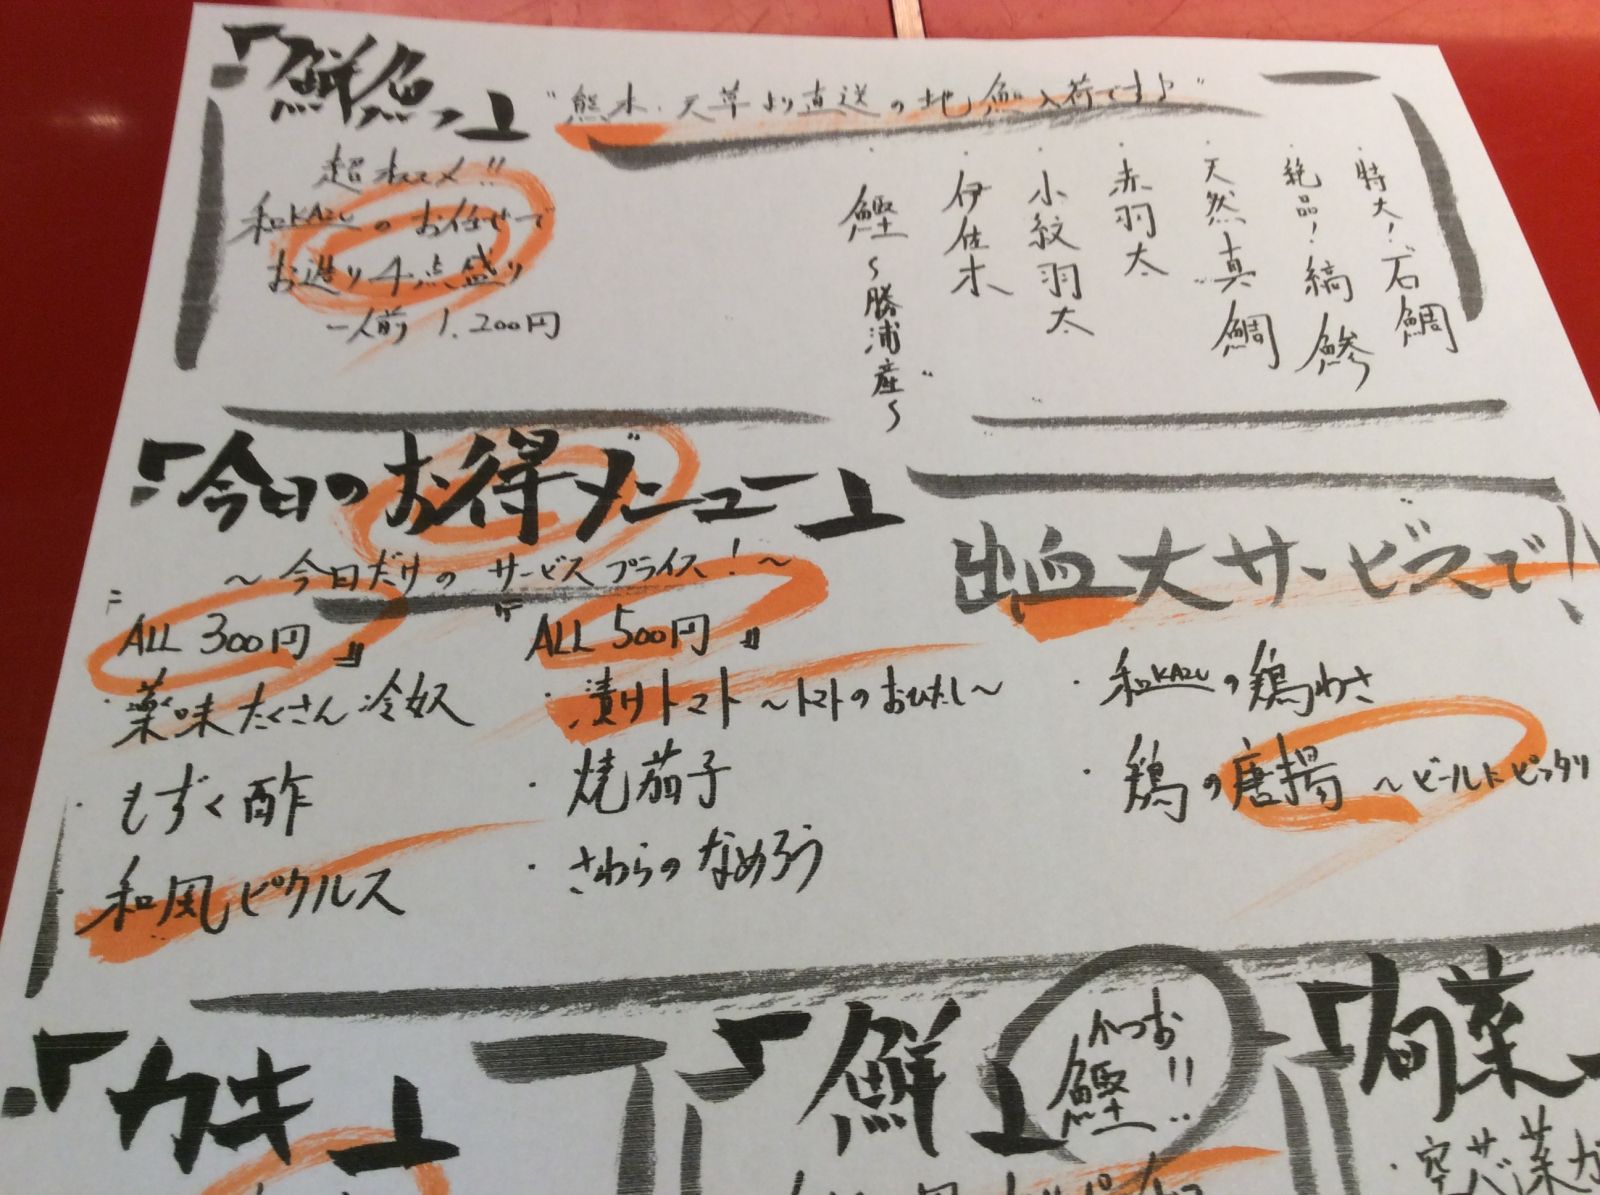 「鮮魚」
"熊本・天草より直送の地魚入荷です♪"
超オススメ!!
和KAZUのお任せで
お造り4点盛り
一人前 1,200円
・特大!石鯛
・絶品!縞鯵
・天然真鯛
・赤羽太
・小紋羽太
・伊佐木
・鰹〜勝浦産〜
「今日のお得メニュー」
〜今日だけのサービスプライス!〜
『ALL 300円』
・薬味たくさん冷奴
・もずく酢
・和風ピクルス
『ALL 500円』
・漬けトマト〜トマトのおひたし〜
・焼茄子
・さわらのなめろう
出血大サービスで!
・和KAZUの鶏わさ
・鶏の唐揚〜ビールにピッタリ
「カキ」
「鮮」
かつお
鰹!!
「旬菜」
・空芯菜ガ